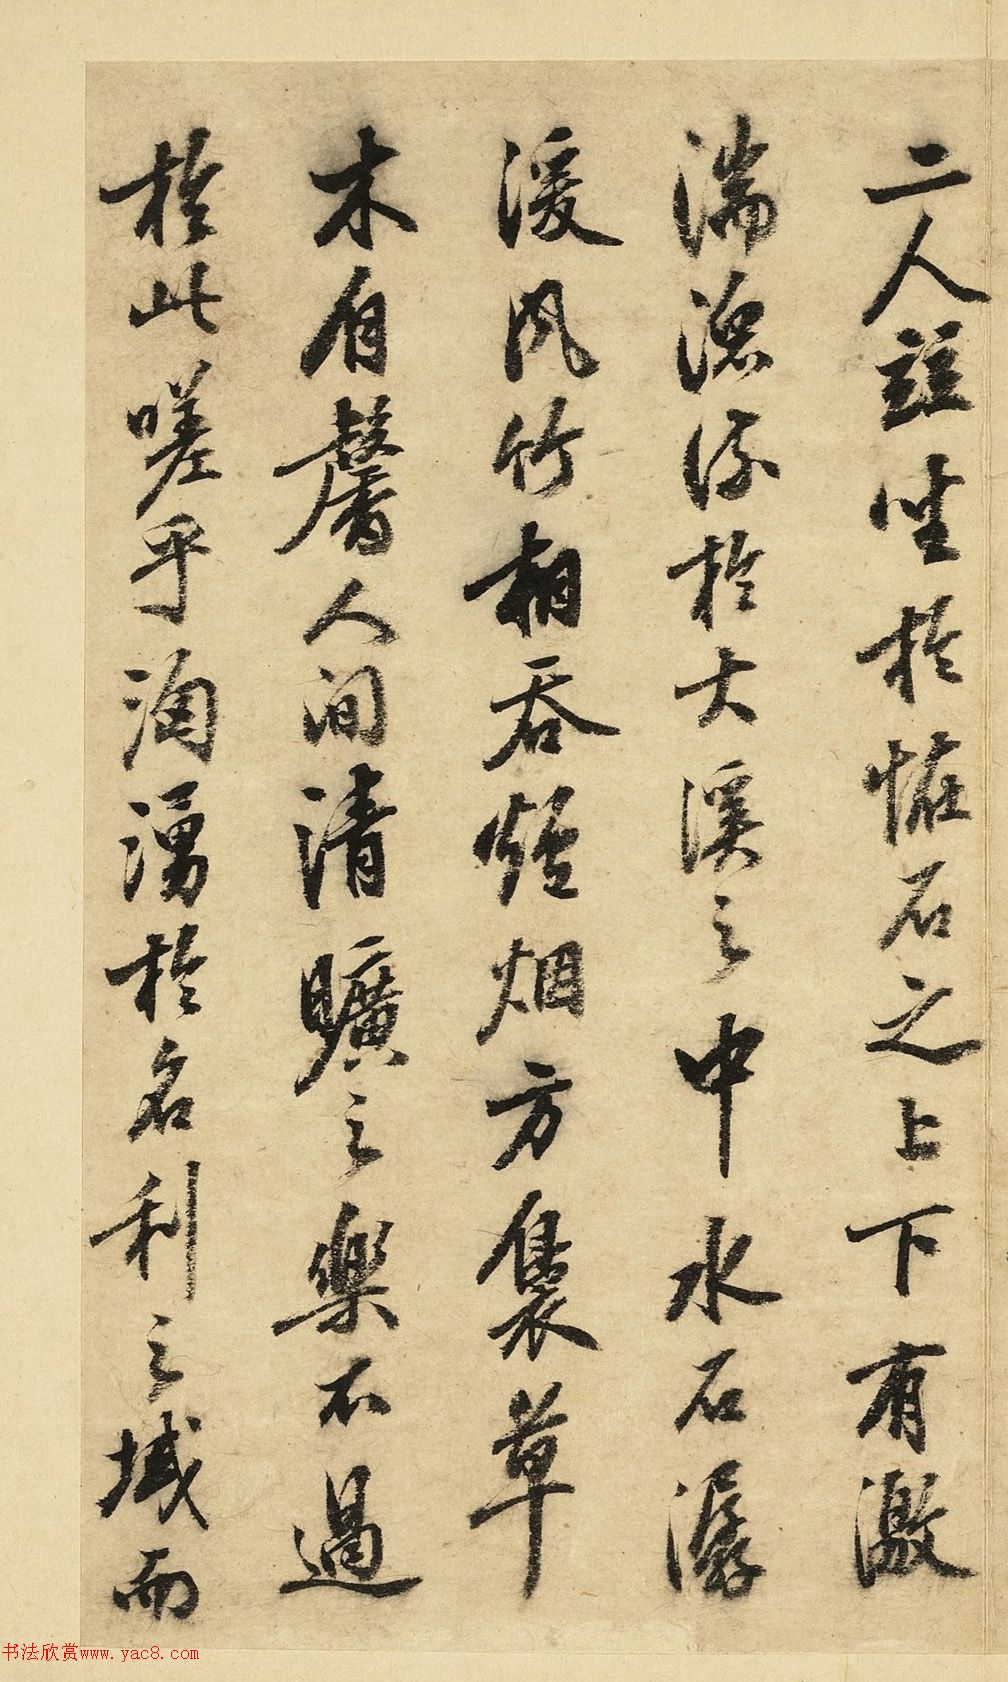 二人竝坐於怪石之上下有激
湍潨流於大溪之中水石潺
湲風竹相吞爐烟方裊草
木自馨人間清曠之樂不過
於此嗟乎洶湧於名利之域而
书法欣赏www.yac8.com